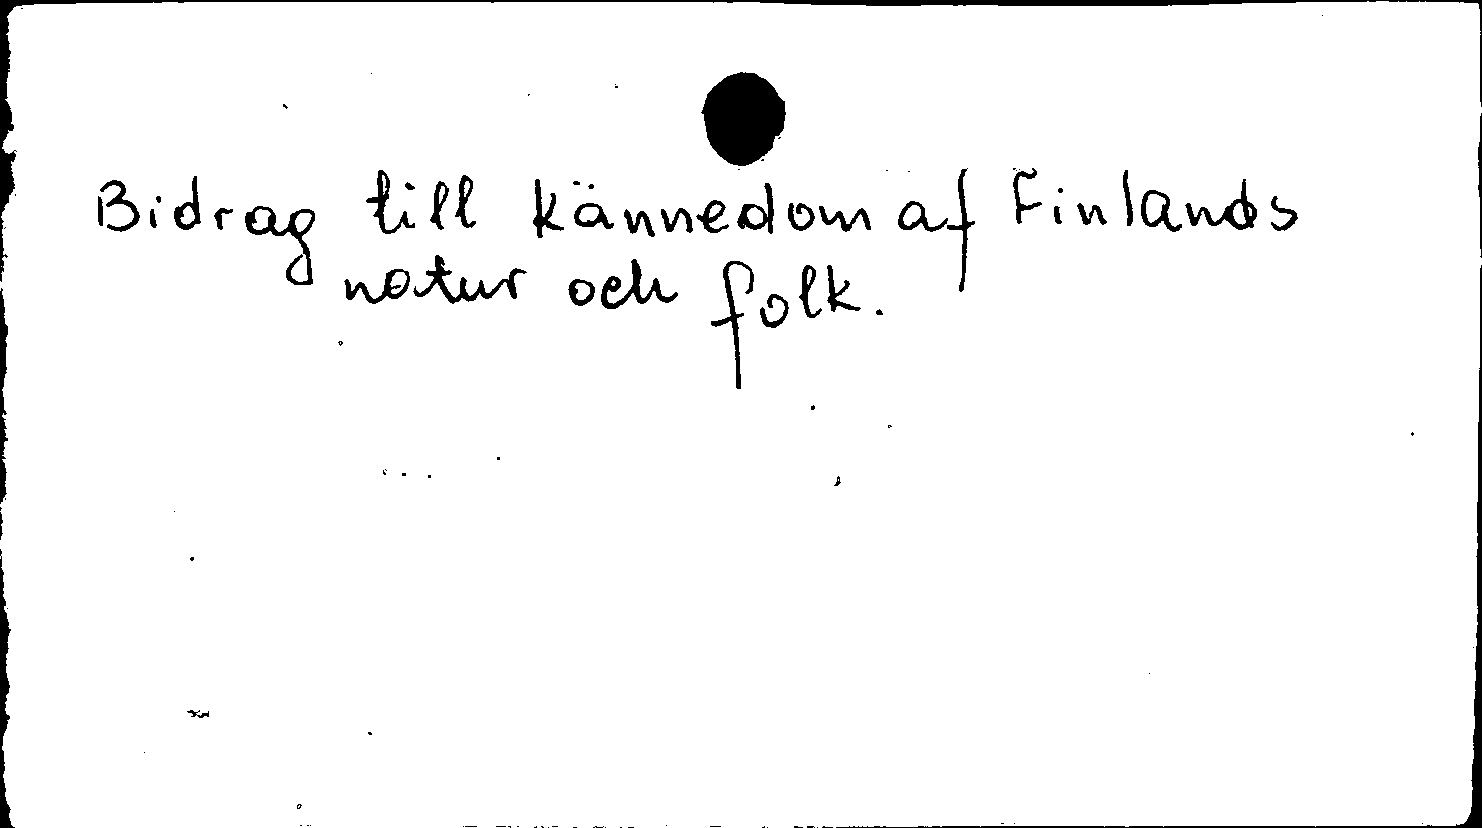 Bidrag till kännedom af Finlands
natur och folk.